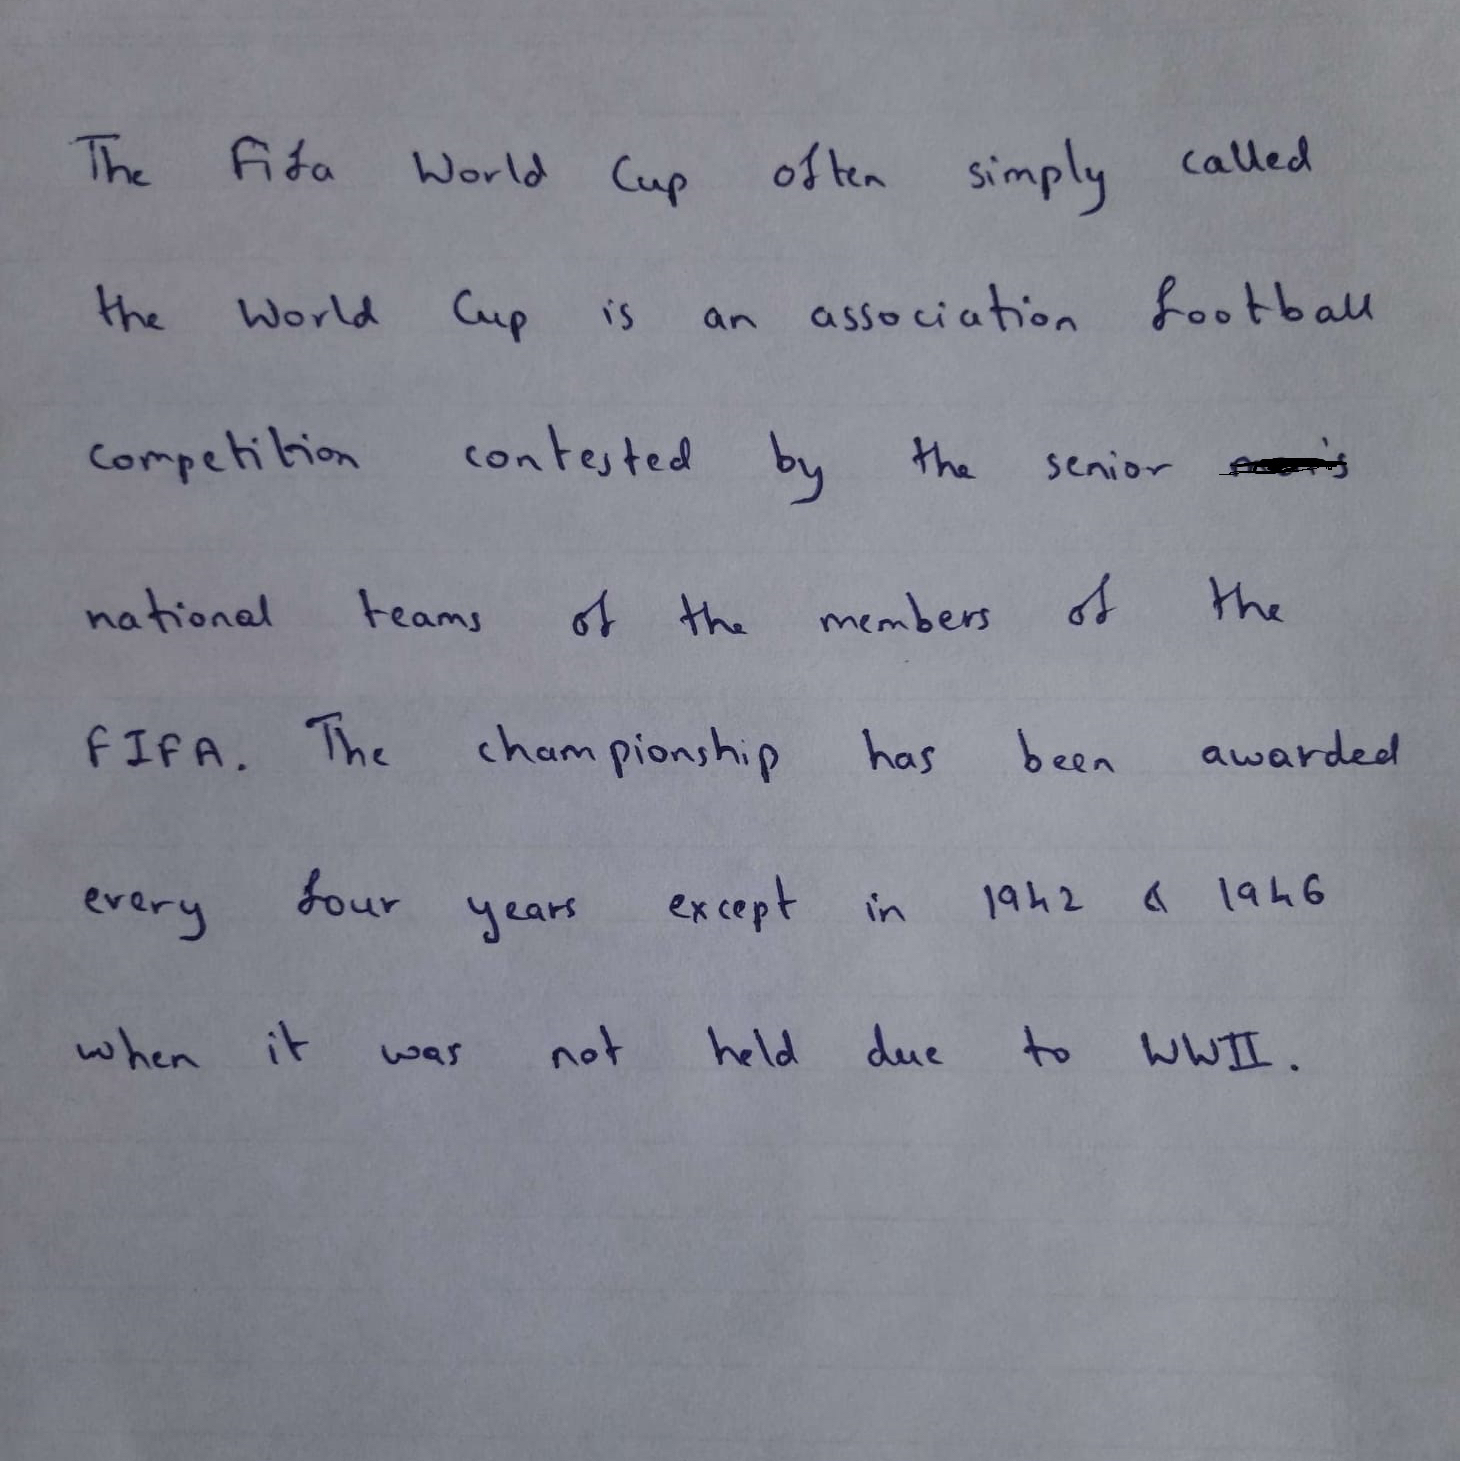 The Fifa World Cup often simply called
the World Cup is an association football
competition contested by the senior
national teams of the members of the
FIFA. The championship has been awarded
every four years except in 1942 & 1946
when it was not held due to WWII.